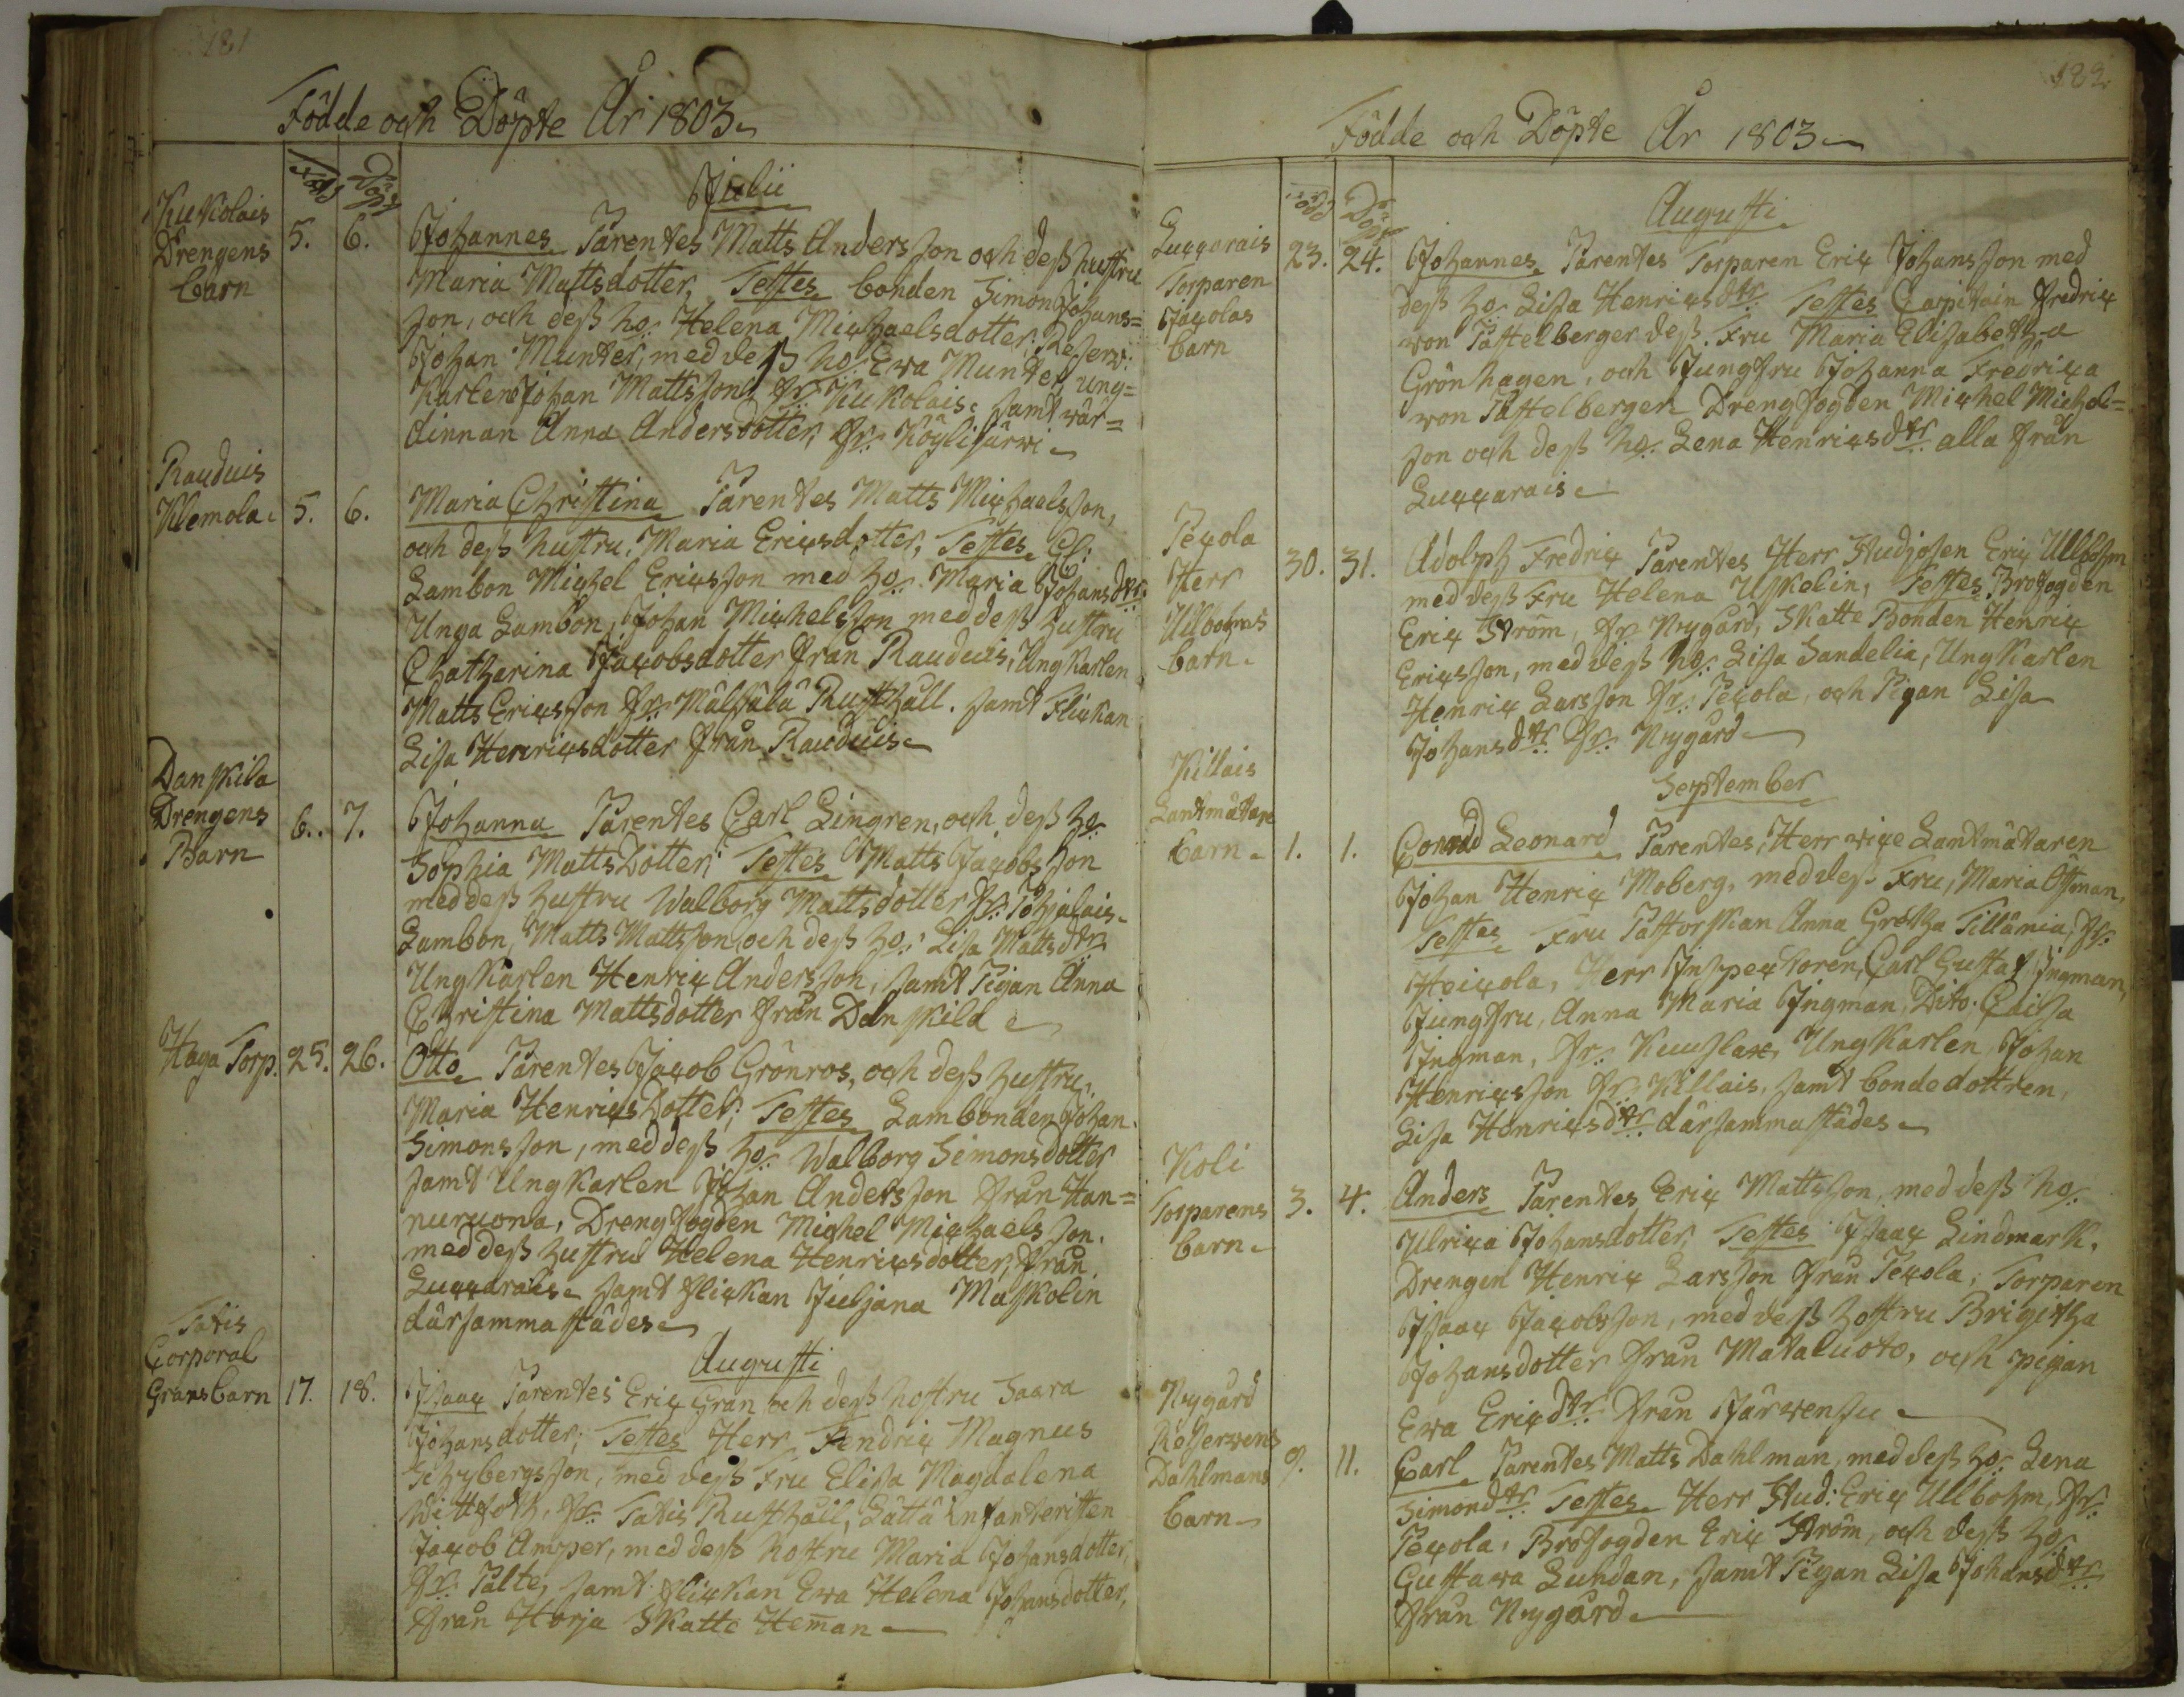 181
Födde och Döpte År 1803
Född Döpt
Julii
Kukolais
Drengens
barn
5. 6.
Johannes Parentes Matts Andersson och dess hustru
Maria Mattsdotter, Testes bonden Simon Johans=
son, och dess ho: Helena Michaelsdotter. Reserv:
Johan Munter, med dess ho: Ewa Munter, ung=
karlen Johan Mattsson fr: Kukolais. samt wär=
dinnan Anna Andersdotter, fr: Köylijärwi
Rauduis
Klemola. 5. 6.
Maria Christina Parentes Matts Michaelsson,
och dess hustru, Maria Ericsdotter, Testes Gl:
Lambon Michel Ericsson med ho: Maria Johansdtr:
Unga Lambon, Johan Michelsson med dess hustru
Chatharina Jacobsdotter från Rauduis, Ungkarlen
Matts Ericsson fr: Mälsälä Rusthåll. samt Flickan
Lisa Henricsdotter från Rauduis
Danskila
Drengens
Barn
6. 7.
Johanna Parentes Carl Lingren, och dess ho:
Sophia MattsDotter; Testes Matts Jacobsson
med dess hustru Walborg Mattsdotter fr: Pohjalais.
Lambon, Matts Mattsson och dess ho: Lisa Mattsdtr:
Ungkarlen Henric Andersson, samt Pigan Anna
Christina Mattsdotter från Danskila
Haga Torp. 25. 26.
Otto Parentes Jacob Grönros, och dess hustru,
Maria HenricsDotter; Testes Lambonden Johan
Simonsson, med dess ho: Walborg Simonsdotter
samt Ungkarlen Johan Andersson från Han=
nuruona, Drengfogden Michel Michaelsson.
med dess hustru Helena Henricsdotter, från
Luccarais. samt flickan Juljana Maskolin
därsammastädes
Augusti
Tatis
Corporal
Grans barn 17. 18.
Isaac Parentes Eric Gran och dess hustru Saara
Johansdotter; Testes Herr Fendric Magnus
Schybergsson, med dess Fru Elisa Magdalena
fr: Tatis Rusthåll, Lätta infanteristen
Jacob Amper, med dess hustru Maria Johansdotter,
fr: Palte, samt flickan Ewa Helena Johansdotter,
från Horja Skatte Heman
182
Födde och Döpte År 1803
Född Döpt
Augusti
Luccarais
Torparen
Jacolas
barn
23. 24.
Johannes Parentes Torparen Eric Johansson med
dess ho: Lisa Henricsdtr: Testes Capitain Fredric
von Pastelberger dess. Fru Maria Elisabetha
Grönhagen, och Jungfru Johanna Fredrica
von Pistelberger. Drengfogden Michel Michel=
son och dess ho: Lena Henricsdtr: alla från
Luccarais
Pecola
Herr
Ullbohms
barn.
30. 31.
Adolph Fredric Parentes Herr Studjosen Eric Ullbohm
med dess Fru Helena Uskelin, Testes Brofogden
Eric Ström, fr: Nygård, Skatte Bonden Henric
Ericsson, med dess ho: Lisa Sandelia, Ungkarlen
Henric Larsson fr: Pecola, och Pigan Lisa
Johansdtr: fr: Nygård
September
Killais
Lantmätare
barn 1. 1.
Conrad Leonard Parentes, Herr vice Lantmätaren
Johan Henric Moberg, med dess Fru, Maria Össman,
Testes Fru Pastorskan Anna Gretha Tillänia, fr:
Heicola, Herr Inspectoren, Carl Gustaf Ingman,
Jungfru, Anna Maria Ingman, Dito. Caisa
Ingman, fr: Kuuslax, Ungkarlen, Johan
Henricsson fr: Killais, samt bondedottren,
Lisa Henricsdtr: därsammastädes
Koli
Torparens
barn
3. 4.
Anders Parentes Eric Mattsson, med dess ho:
Ulrica Johansdotter, Testes Isaac Lindmark,
Drengen Henric Larsson från Pecola; Torparen
Isaac Jacobsson, med dess hostru Brigitha
Johansdotter från Mataluoto, och pigan
Ewa Ericdtr: från Järwensu
Nygård
Reserwens
Dahlmans
barn
9. 11.
Carl Parentes Matts Dahlman, med dess ho: Lena
Simondtr: Testes Herr Stud: Eric Ullbohm, fr:
Pecola, Brofogden Eric Ström, och dess ho:
Gustawa Lundan, samt Pigan Lisa Johansdtr:
från Nygård